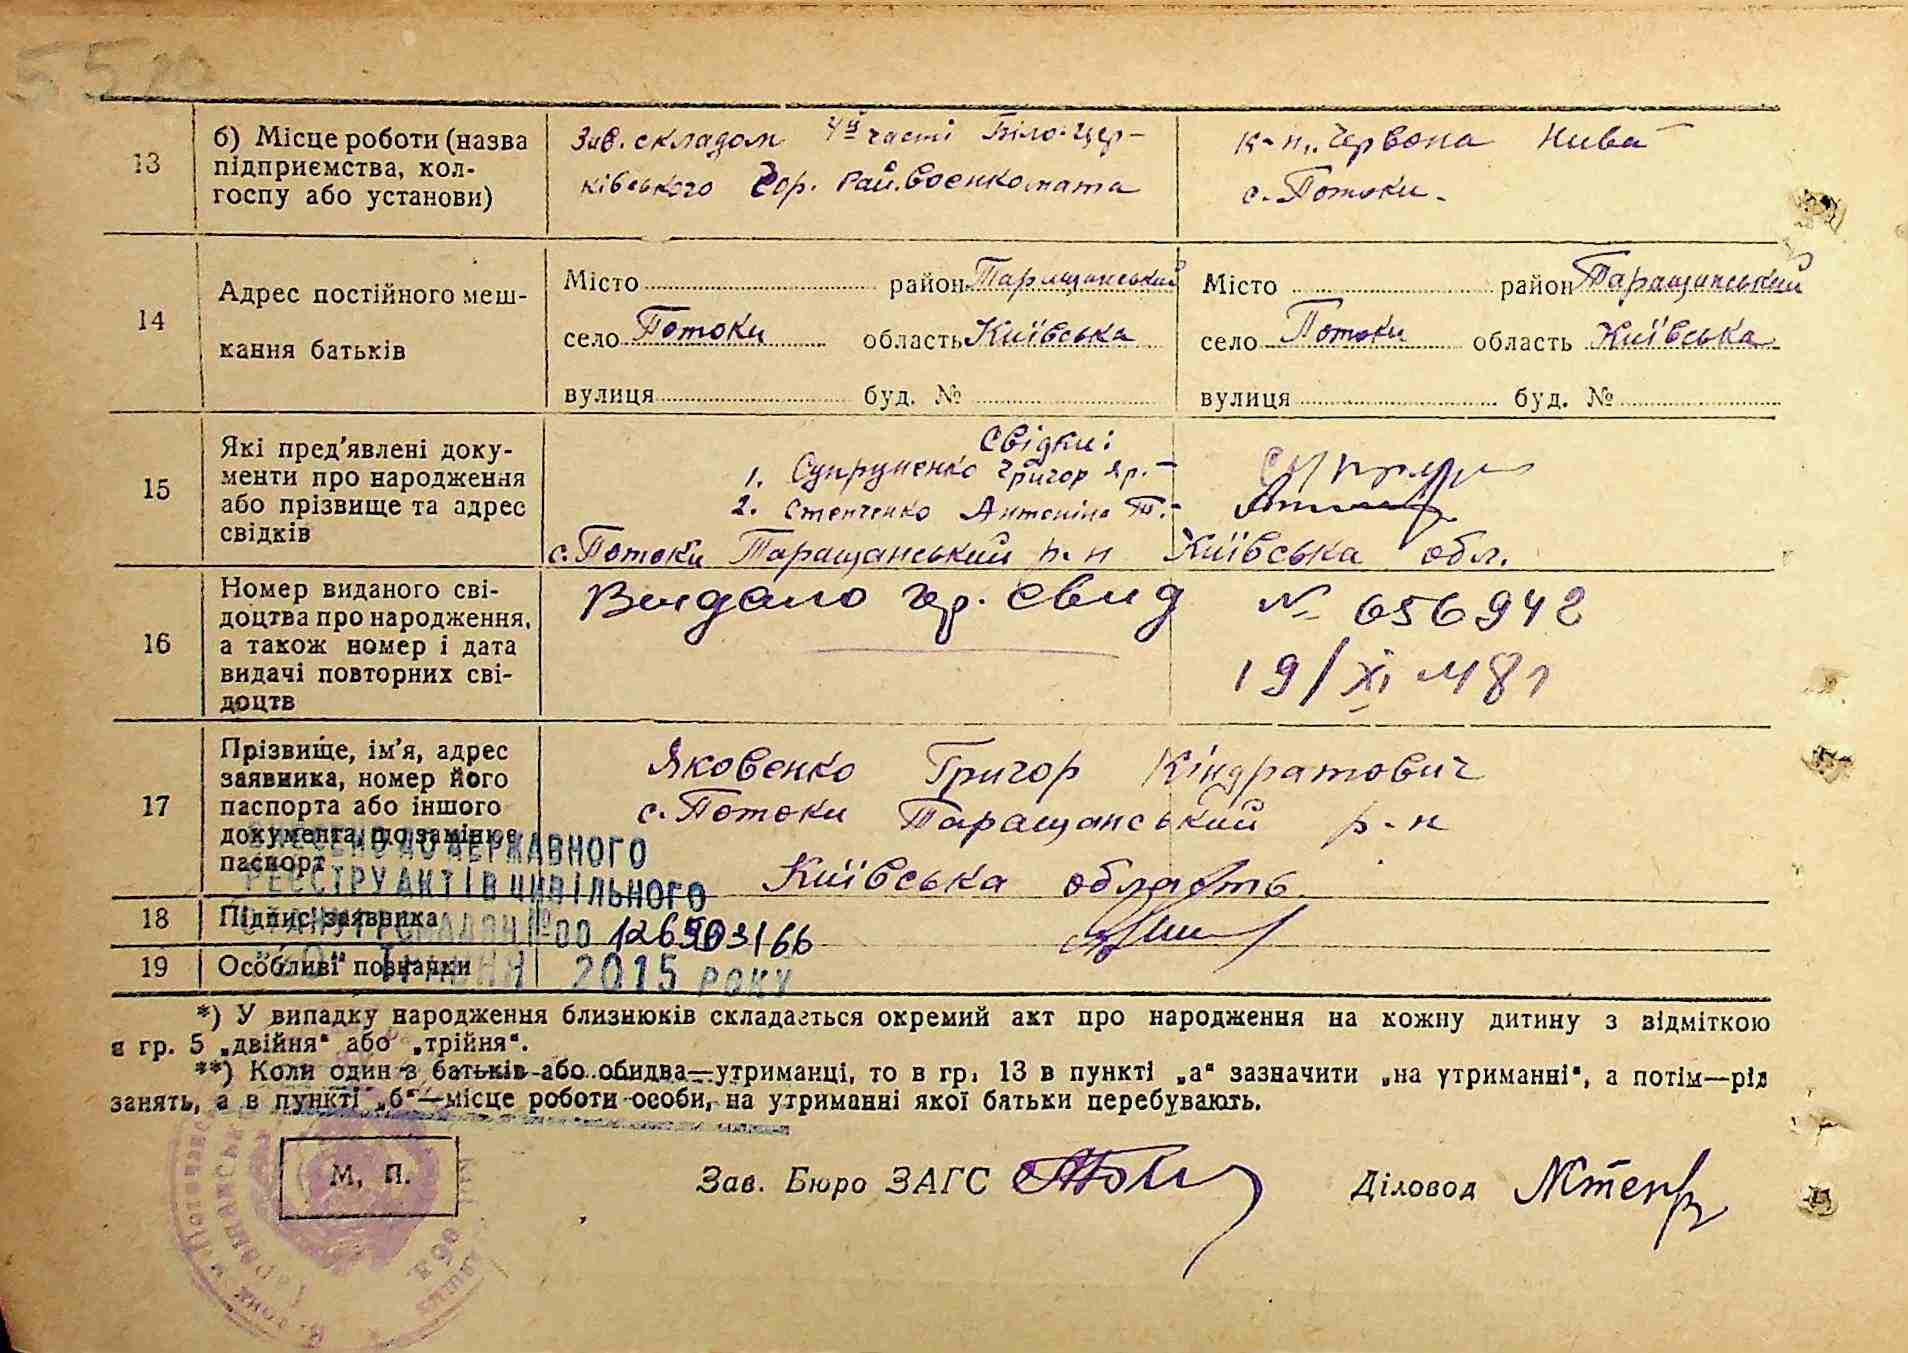 13
б) Місце роботи (назва
підприємства, кол-
госпу або установи)
Зав. складом 4й часті Біло-Цер-
ківського Гор. Рай. Воєнкомата
к-п „Червона Нива
с. Потоки.
14
Адрес постійного меш-
кання батьків
Місто район Таращанський
село Потоки область Київська
вулиця буд. №
Місто район Таращанський
село Потоки область Київська
вулиця буд. №
15
Які пред'явлені доку-
менти про народження
або прізвище та адрес
свідків
Свідки:
1. Супруненко Григор Яр. –
2. Степченко Антоніна
с. Потоки Таращанський р-н Київська обл.
16
Номер виданого сві-
доцтва про народження,
а також номер і дата
видачі повторних сві-
доцтв
Видано свид № 656942
19/XI
17
Прізвище, ім'я, адрес
заявника, номер його
паспорта або іншого
документа, що замінює
паспорт
Яковенко Григор Кіндратович
с. Потоки Таращанський р-н
Київська область
ДО ДЕРЖАВНОГО
РЕЄСТРУ АКТІВ ЦИВІЛЬНОГО
СТАНУ ГРОМАДЯН № 00
2015 РОКУ
18
Підпис заявника
19
Особливі позначки
*) У випадку народження близнюків складається окремий акт про народження на кожну дитину з відміткою
в гр. 5 „двійня“ або „трійня“.
**) Коли один з батьків або обидва—утриманці, то в гр. 13 в пункті „а“ зазначити „на утриманні“, а потім—рід
занять, а в пункті „б“—місце роботи особи, на утриманні якої батьки перебувають.
М. П.
Зав. Бюро ЗАГС
Діловод